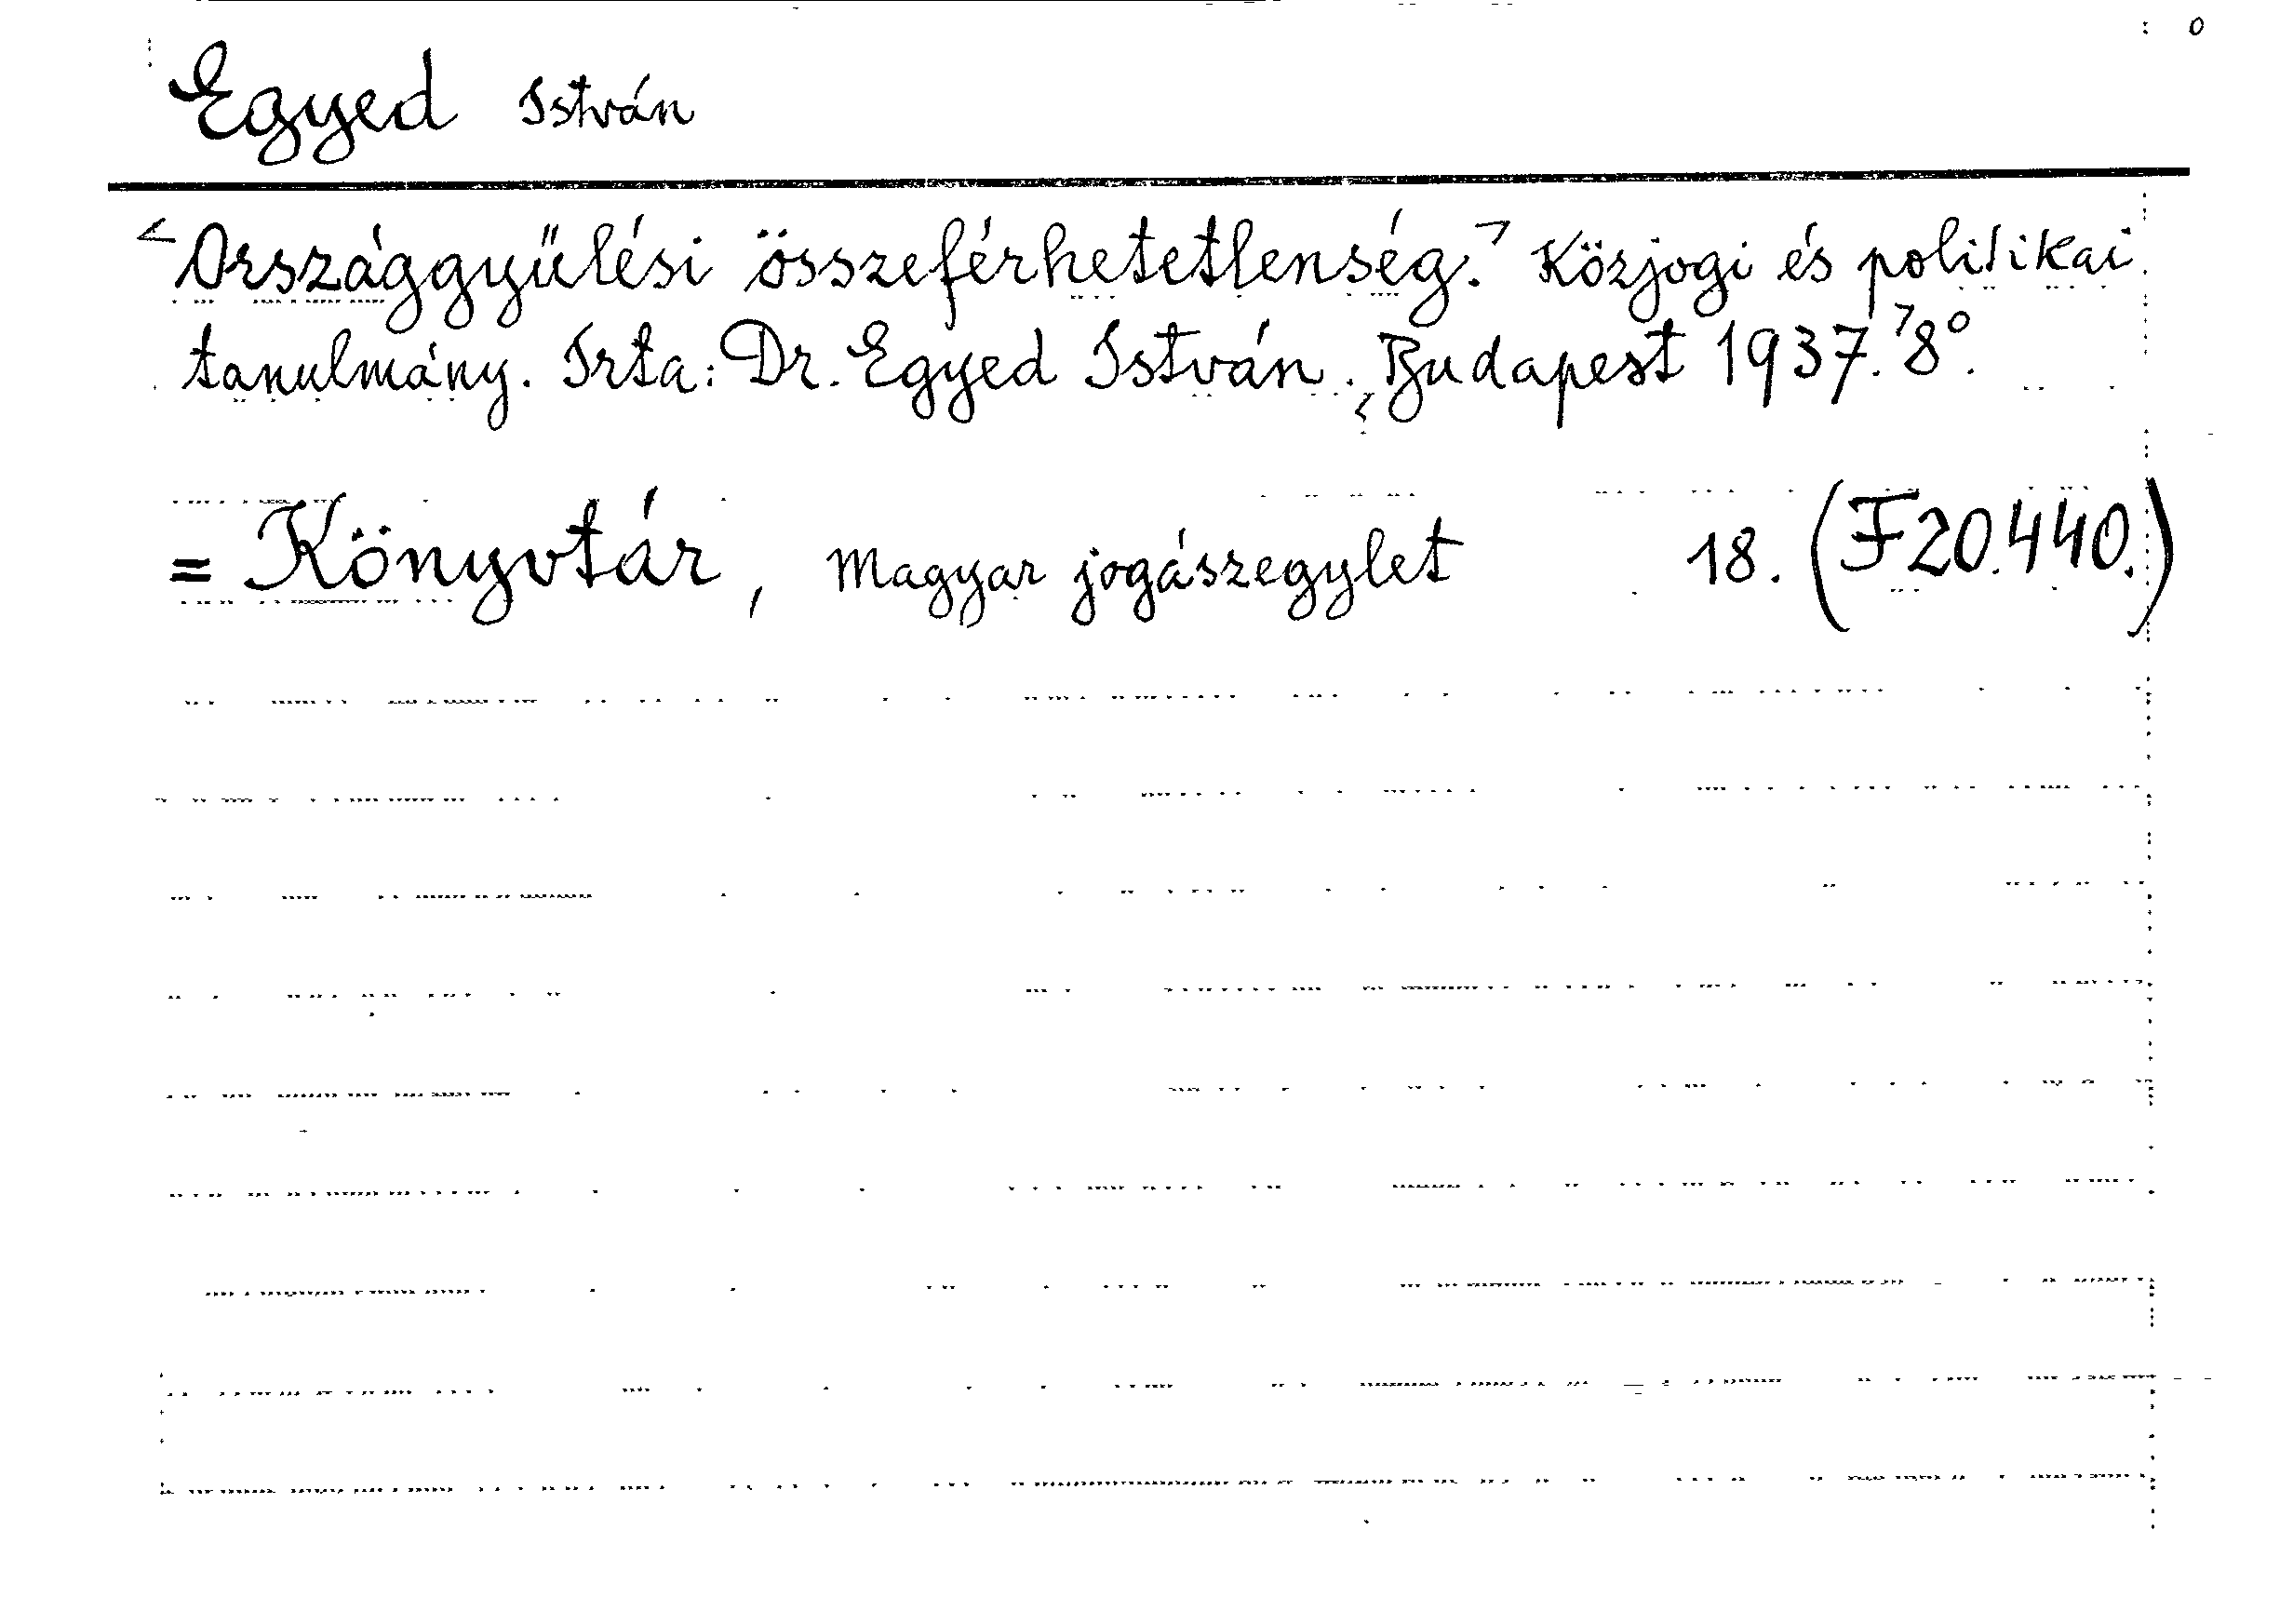 Egyed István
<Országgyűlési összeférhetetlenség.> Közjogi és politikai
tanulmány. Irta: Dr. Egyed István. <Budapest 1937.> 8°.
= Könyvtár, Magyar jogászegylet 18. (F20.440.)